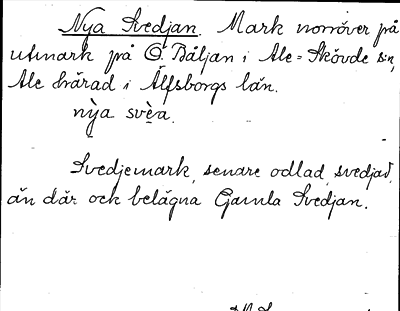 Nya Svedjan. Mark norröver på
utmark på Ö. Båljan i Ale-Skövde sn,
Ale härad i Älfsborgs län.
nỳa svèa.
Svedjemark, senare odlad, svedjad,
än där och belägna Gamla Svedjan.